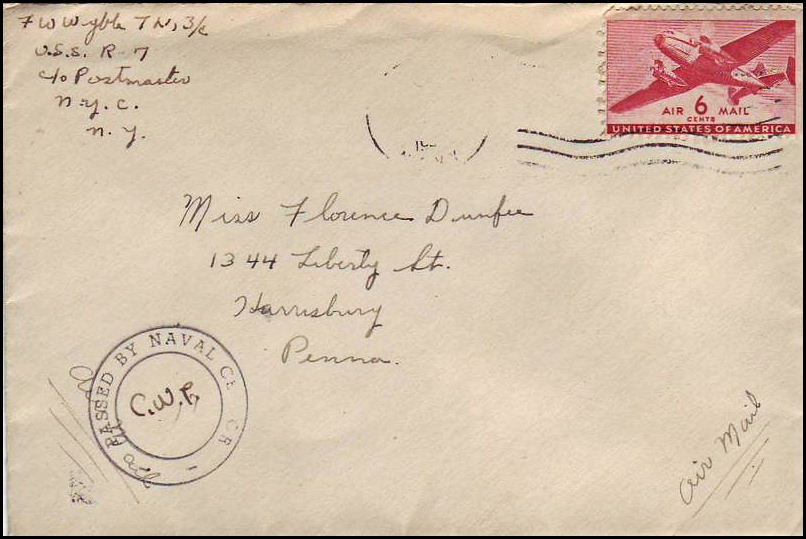 F W Wyble TN, 3/c
U.S.S. R-7
c/o Postmaster
N.Y.C.
N.Y.
AIR 6 MAIL
CENTS
UNITED STATES OF AMERICA
Miss Florence Dunfee
1344 Liberty St.
Harrisburg
Penna.
PASSED BY NAVAL
Air Mail